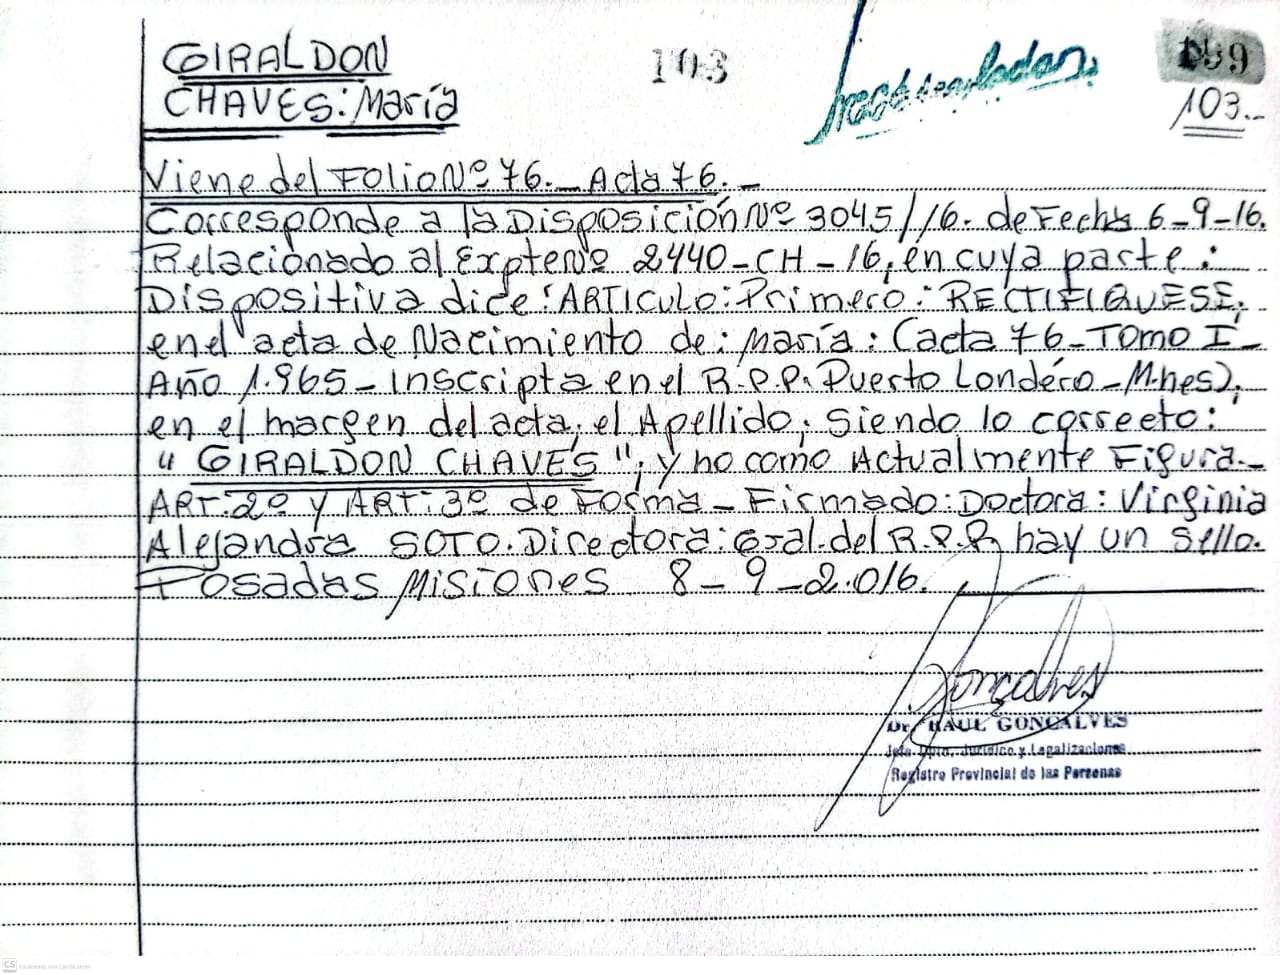 GIRALDON
CHAVES: María
103
103.-
Viene del Folio Nº 76.- Acta 76.-
Corresponde a la Disposición Nº 3045//16. de Fecha 6-9-16.
Relacionado al Expte Nº 2440-CH-16, en cuya parte:
Dispositiva dice: ARTICULO: Primero: RECTIFIQUESE,
en el acta de Nacimiento de: María: (acta 76-Tomo I-
Año 1.965- Inscripta en el R.P.P. Puerto Londero-M.nes),
en el margen del acta, el Apellido, siendo lo correcto:
"GIRALDON CHAVES", y no como Actualmente Figura.-
ART.2º y ART:3º de Forma- Firmado: Doctora: Virginia
Alejandra SOTO. Directora: Gral. del R.P.P. hay un sello.
Posadas Misiones 8-9-2.016.
Goncalves
Dr. RAUL GONCALVES
Jefe Dpto. Jurídico y Legalizaciones
Registro Provincial de las Personas
CS Escaneado con CamScanner